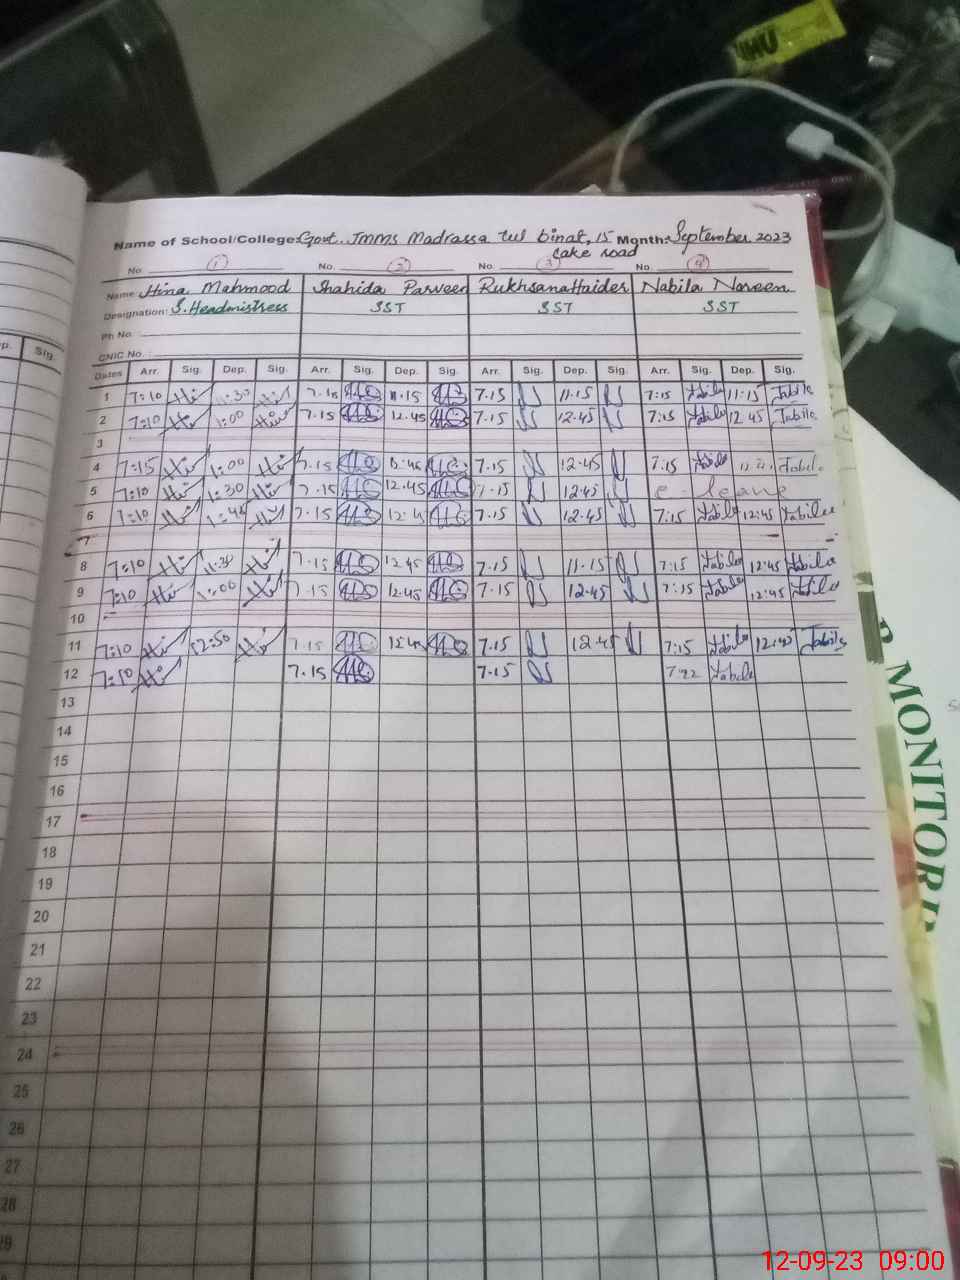 UHU
Name of School/College: Govt. JMMS Madrassa tul binat, 15 Month: September 2023
Lake road
No. 1 No. 2 No. 3 No. 4
Name: Hina Mahmood Shahida Parveen Rukhsana Haider Nabila Noreen
Designation: S. Headmistress SST SST SST
Ph No.:
CNIC No.:
p. Sig.
Dates Arr. Sig. Dep. Sig. Arr. Sig. Dep. Sig. Arr. Sig. Dep. Sig. Arr. Sig. Dep. Sig.
1 7:10 11:30 7.15 11.15 7.15 11.15 7:15 Nabila 11:15 Nabila
2 7:10 1:00 7.15 12.45 7.15 12.45 7:15 Nabila 12 45 Nabila
3
4 7:15 1:00 7.15 7.15 12.45 7:15 Nabila Nabila
5 7:10 1:30 7.15 12.45 7.15 12.45 e-leave
6 7:10 7.15 7.15 12.45 7:15 Nabila 12:45 Nabila
7
8 7:10 11:30 7.15 12 45 7.15 11.15 7:15 Nabila 12:45 Nabila
9 7:10 1:00 7.15 12.45 7.15 12.45 7:15 Nabila 12:45 Nabila
10
11 7:10 12:50 7.15 7.15 12.45 7:15 Nabila 12:45 Nabila
12 7:10 7.15 7.15 7:22 Nabila
13
14
15
16
17
18
19
20
21
22
23
24
25
26
27
28
29
MONITOR
12-09-23 09:00